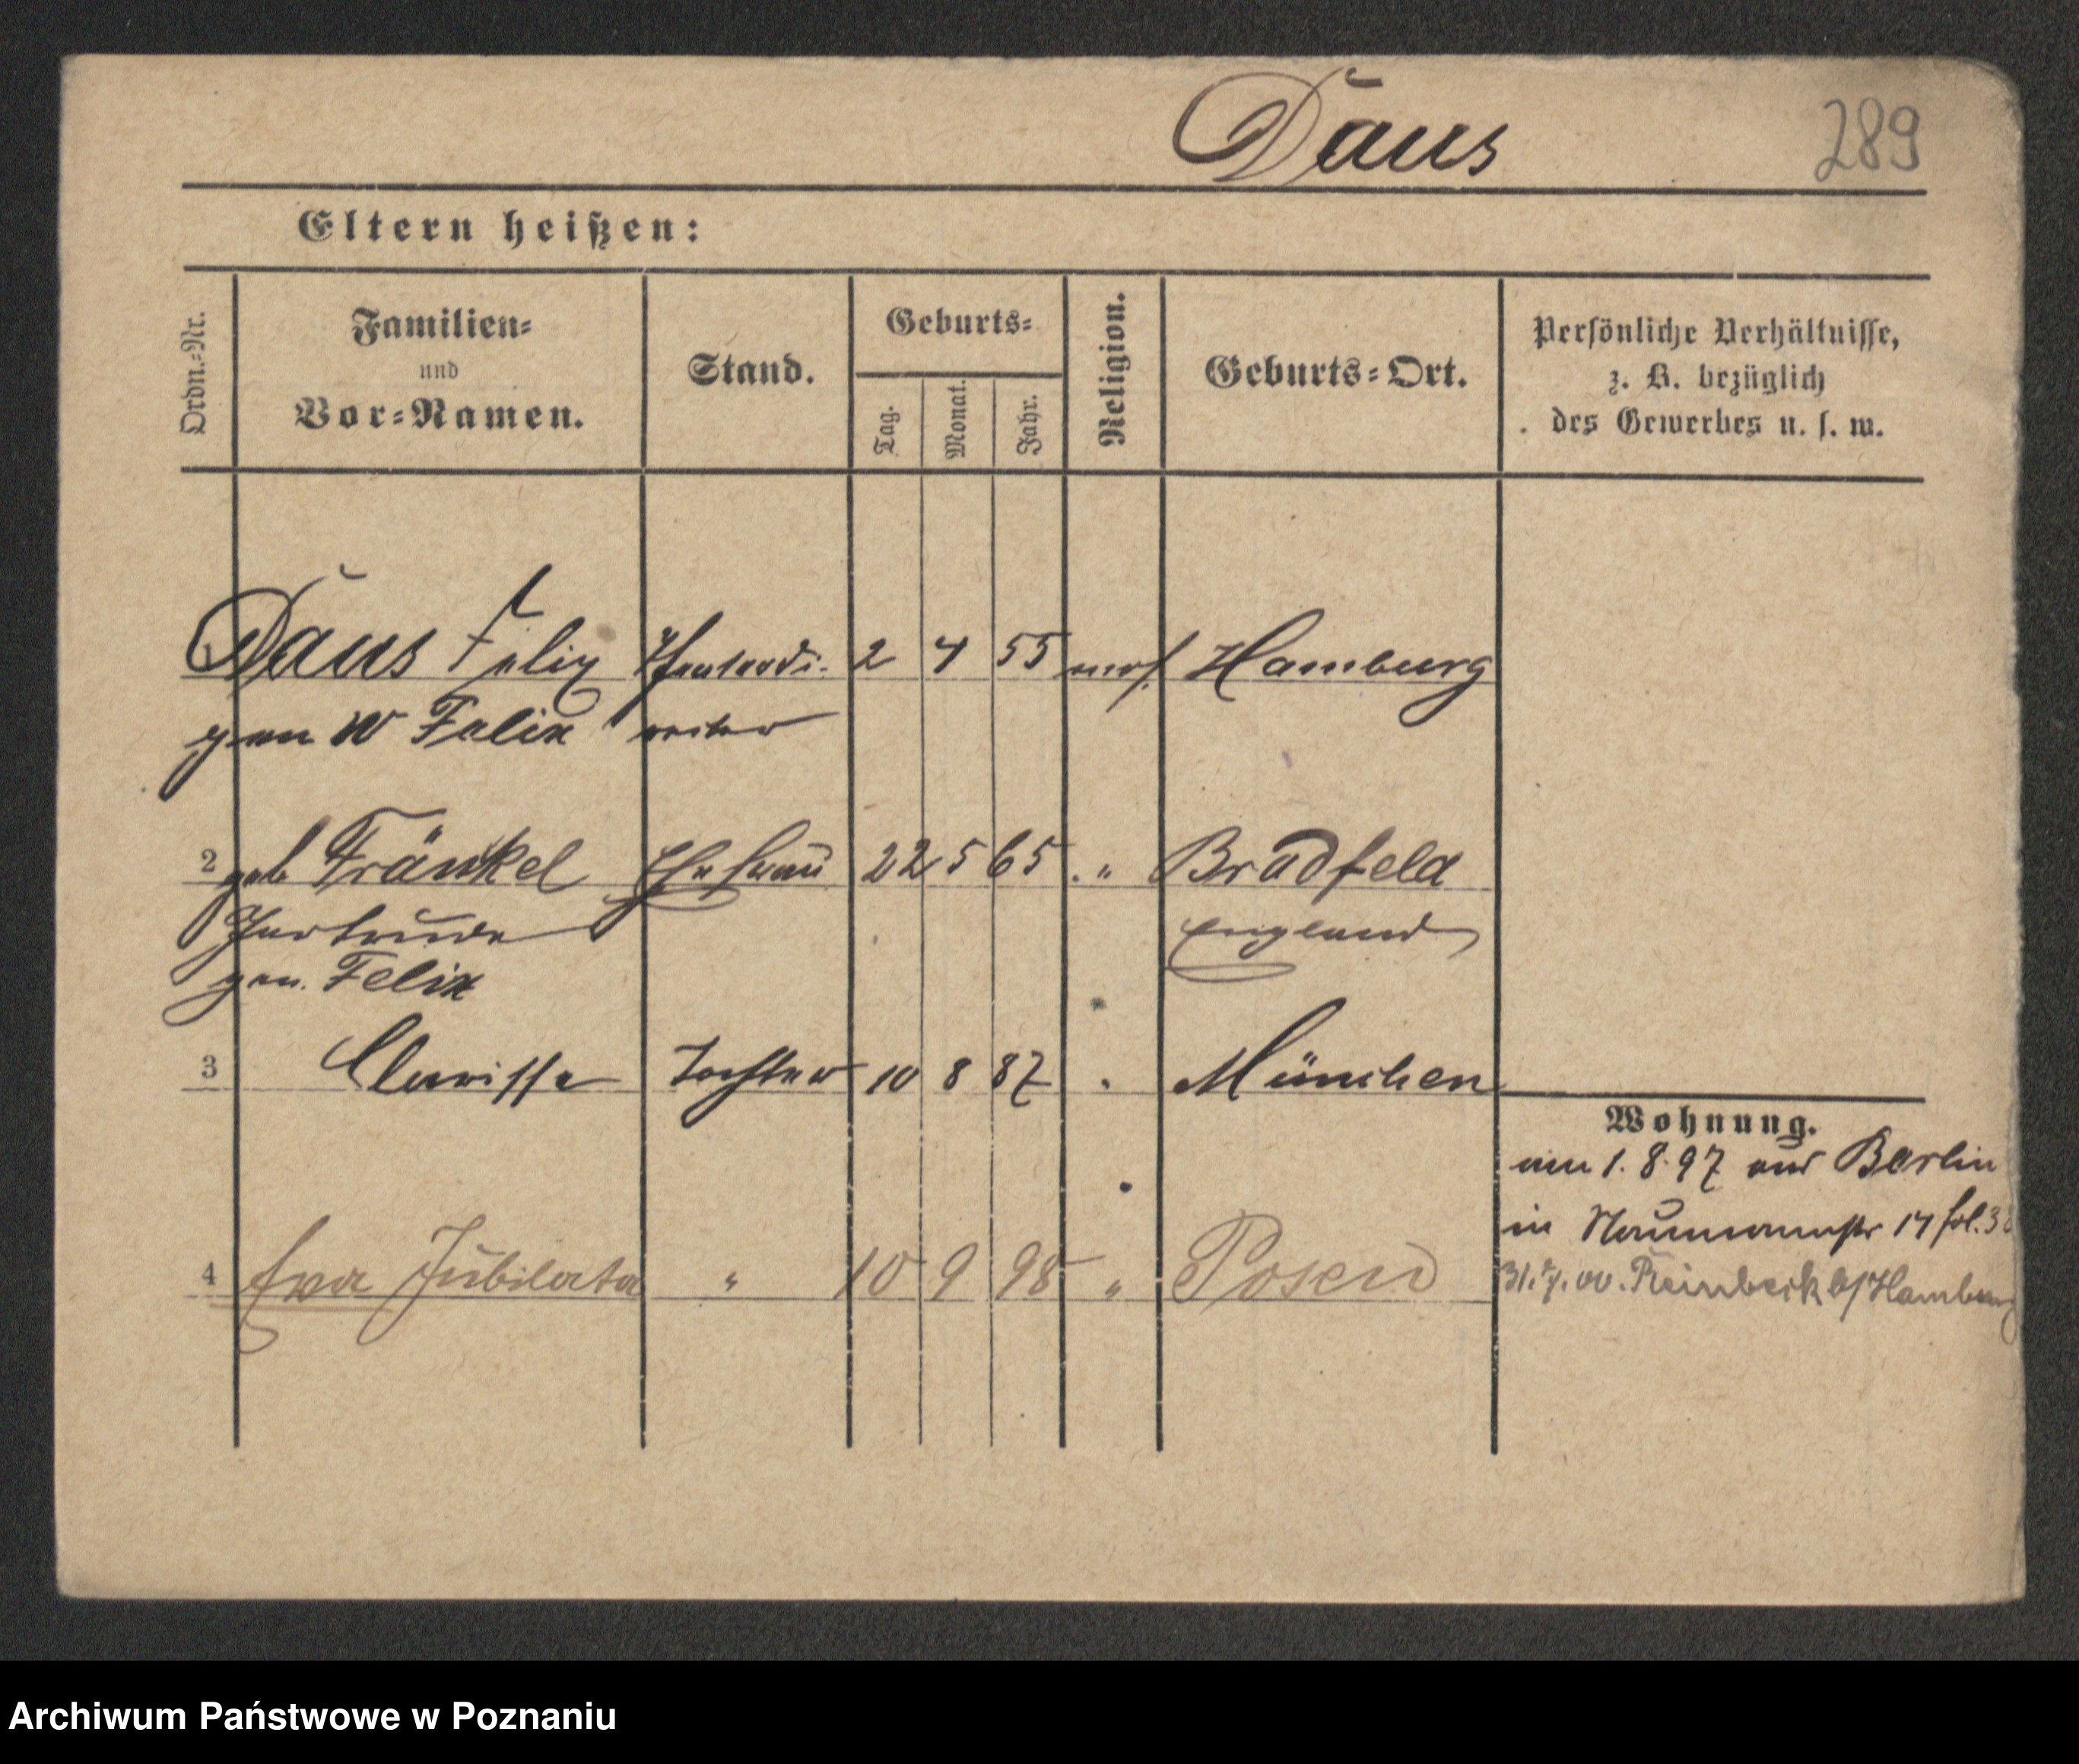 Daus 289
Eltern heißen:
Ordn.-Nr. Familien- und Vor-Namen. Stand. Geburts- Tag. Monat. Jahr. Religion. Geburts-Ort. Persönliche Verhältnisse, z. B. bezüglich des Gewerbes u. s. w.
Daus Felix Theaterdi- 2 4 55 mos. Hamburg
gen W Felix rektor
2 geb Fränkel Ehefrau 22 5 65 " Bradfeld
Gertrude England
gen. Felix
3 Clarissa Tochter 10 8 87 " München
Wohnung.
am 1. 8. 97 aus Berlin
in Naumannstr 14 fol. 3
4 Eva Jubilata " 10 9 98 " Posen
31. 7. 00. Reinbeck b/Hamburg
Archiwum Państwowe w Poznaniu